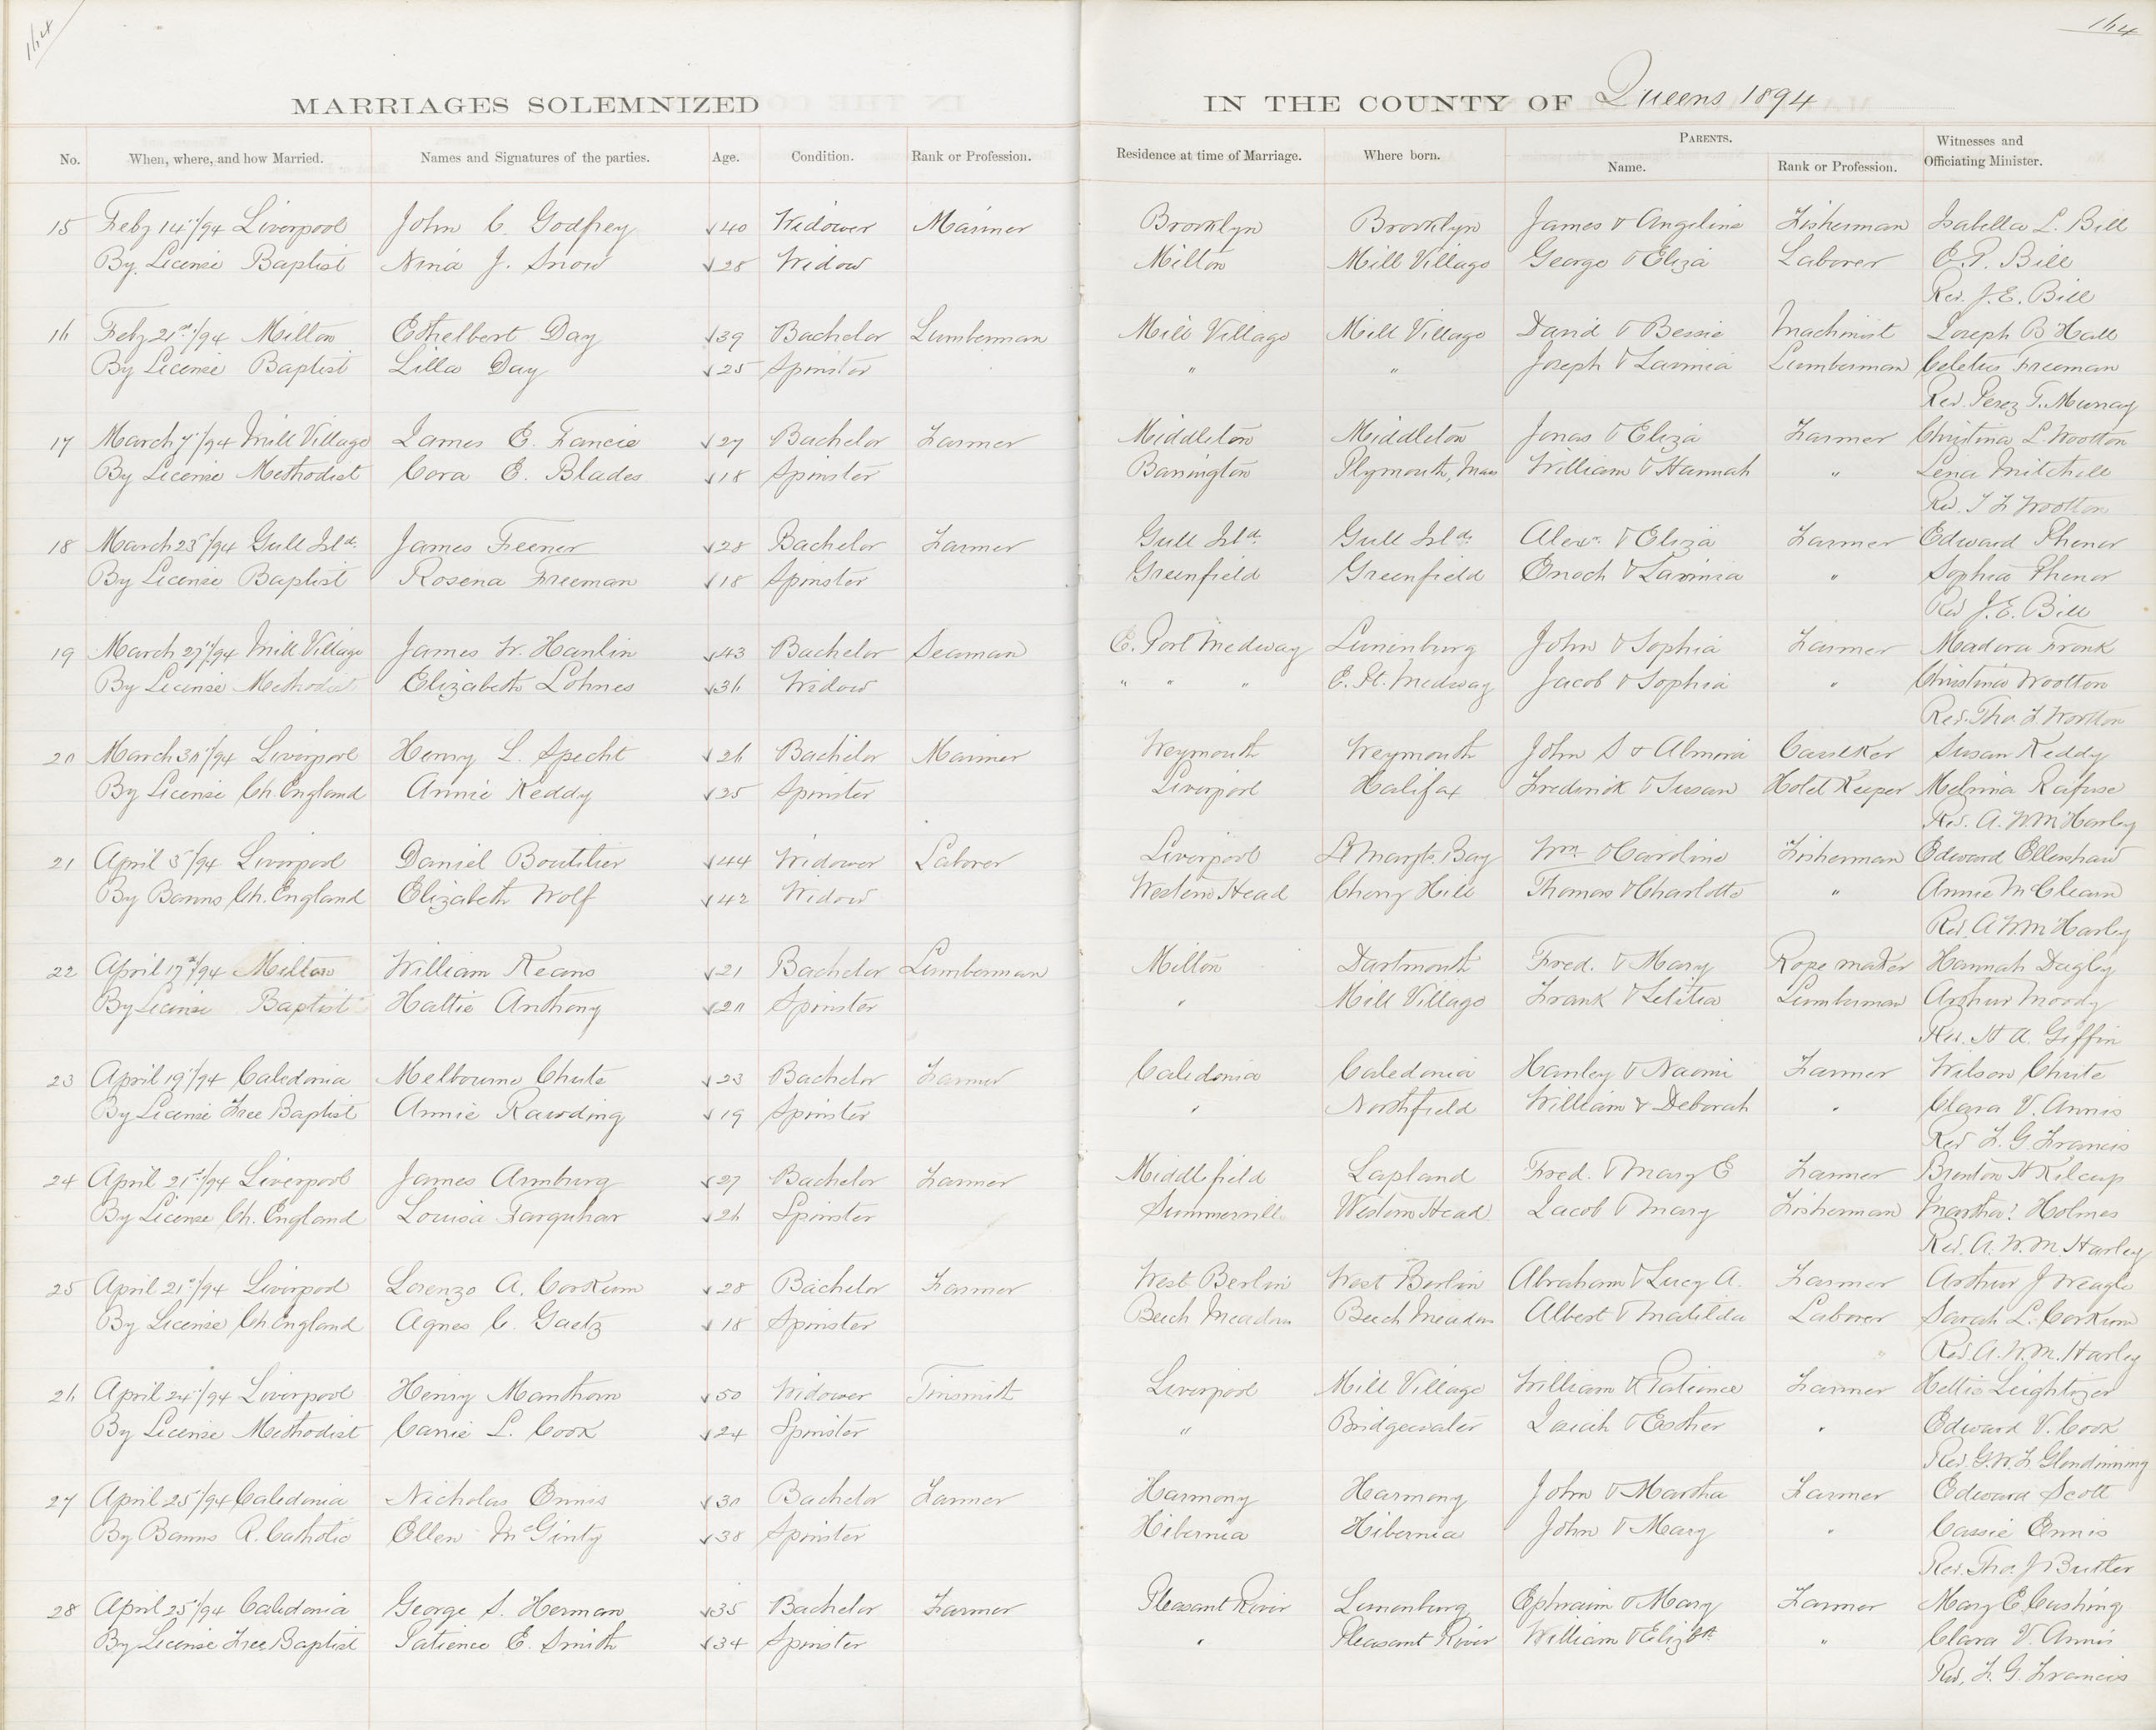 164
164
MARRIAGES SOLEMNIZED IN THE COUNTY OF Queens 1894
No. When, where, and how Married. Names and Signatures of the parties. Age. Condition. Rank or Profession. Residence at time of Marriage. Where born. PARENTS. Name. Rank or Profession. Witnesses and Officiating Minister.
15 Feby 14"/94 Liverpool John C. Godfrey √40 Widower Mariner Brooklyn Brooklyn James & Angelina Fisherman Isabella L. Bill
By License Baptist Nina J. Snow √28 Widow Milton Mill Village George & Eliza Laborer C. P. Bill
Rev. J. E. Bill
16 Feby 21st/94 Milton Ethelbert Day √39 Bachelor Lumberman Mill Village Mill Village David & Bessie Machinist Joseph B Hall
By License Baptist Lilla Day √25 Spinster " " Joseph & Lavinia Lumberman Celetus Freeman
Rev. Perez F. Murray
17 March 7"/94 Mill Village James E. Fancie √27 Bachelor Farmer Middleton Middleton Jonas & Eliza Farmer Christina L. Wootton
By License Methodist Cora E. Blades √18 Spinster Barrington Plymouth, Mass William & Hannah " Lena Mitchell
Rev. T F Wootton
18 March 23"/94 Gull Isld. James Feener √28 Bachelor Farmer Gull Isld. Gull Isld. Alexr. & Eliza Farmer Edward Phener
By License Baptist Rosena Freeman √18 Spinster Greenfield Greenfield Enoch & Lavinia " Sophia Phener
Rev J. E. Bill
19 March 27"/94 Mill Village James W. Hanlin √43 Bachelor Seaman E. Port Medway Lunenburg John & Sophia Farmer Madora Fronk
By License Methodist Elizabeth Lohnes √36 Widow " " " E. Pt. Medway Jacob & Sophia " Christina Wootton
Rev. Tho F. Wootton
20 March 30"/94 Liverpool Henry L. Specht √26 Bachelor Mariner Weymouth Weymouth John S & Almira Caulker Susan Keddy
By License Ch. England Annie Keddy √25 Spinster Liverpool Halifax Frederick & Susan Hotel Keeper Melvina Rafuse
Rev. A. W M Harley
21 April 5"/94 Liverpool Daniel Boutilier √44 Widower Laborer Liverpool St Margts. Bay Wm. & Caroline Fisherman Edward Ellenshaw
By Banns Ch. England Elizabeth Wolf √42 Widow Western Head Cherry Hill Thomas & Charlotte " Annie McClearn
Rev. A W M Harley
22 April 17"/94 Milton William Keans √21 Bachelor Lumberman Milton Dartmouth Fred. & Mary Rope maker Hannah Dagley
By License Baptist Hattie Anthony √20 Spinster " Mill Village Frank & Letitia Lumberman Arthur Moody
Rev. H A. Giffin
23 April 19"/94 Caledonia Melbourne Chute √23 Bachelor Farmer Caledonia Caledonia Hanley & Naomi Farmer Wilson Chute
By License Free Baptist Annie Rawding √19 Spinster " Northfield William & Deborah " Clara V. Annis
Rev F. G Francis
24 April 21st/94 Liverpool James Armburg √27 Bachelor Farmer Middlefield Lapland Fred. & Mary E Farmer Brenton H Kilcup
By License Ch. England Louisa Farquhar √26 Spinster Summerville Western Head Jacob & Mary Fisherman Martha? Holmes
Rev. A. W. M. Harley
25 April 21st/94 Liverpool Lorenzo A. Corkum √28 Bachelor Farmer West Berlin West Berlin Abraham & Lucy A. Farmer Arthur J Weagle
By License Ch England Agnes C. Gaetz √18 Spinster Beech Meadow Beech Meadow Albert & Matilda Laborer Sarah L. Corkum
Rev. A. W. M. Harley
26 April 24"/94 Liverpool Henry Manthorn √50 Widower Tinsmith Liverpool Mill Village William & Patience Farmer Hettie Leightizer
By License Methodist Carrie L. Cook √24 Spinster " Bridgewater Isaiah & Esther " Edward V. Cook
Rev. G. W. F. Glendinning
27 April 25"/94 Caledonia Nicholas Ennis √30 Bachelor Farmer Harmony Harmony John & Martha Farmer Edward Scott
By Banns R. Catholic Ellen McGinty √38 Spinster Hibernia Hibernia John & Mary " Cassie Ennis
Rev. Tho. J Butler
28 April 25"/94 Caledonia George S. Herman √35 Bachelor Farmer Pleasant River Lunenburg Ephraim & Mary Farmer Mary E Cushing
By License Free Baptist Patience E. Smith √34 Spinster " Pleasant River William & Elizbth " Clara V. Annis
Rev. F. G. Francis